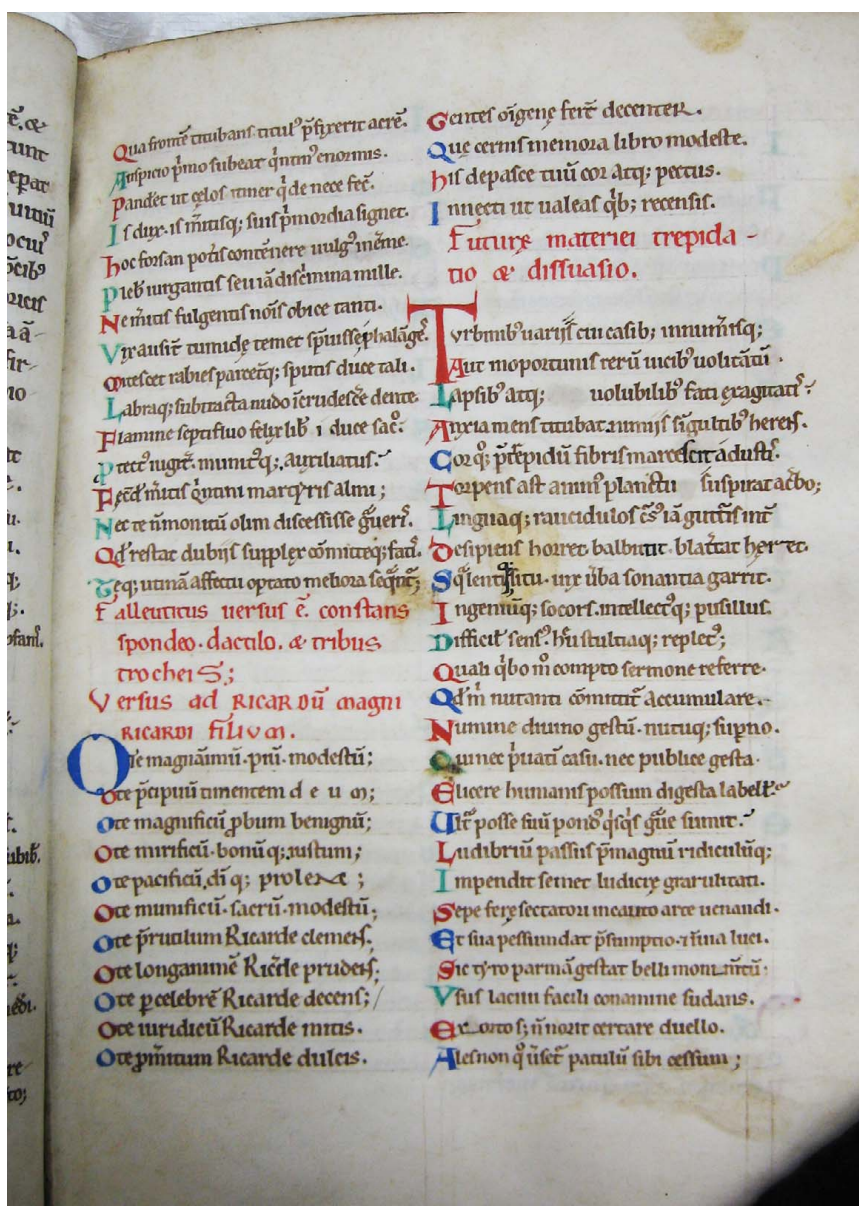 Qua fronte titubans titul' p̄fixerit acrē.
Auspicio p̄mo subeat q̄ntin' enormis.
Pandet ut celos itiner q̄ de nece fec̄.
Is dux. is mītisq; suis p̄mordia signet.
hoc forsan potis contēnere uulg' inerme.
Pleb' iurgantis seu iā discrimina mille.
Ne mītis fulgentis nōis obice tanti.
Vix ausit tumide temet spreuisse phalāge.
Mitescet rabies parcetq; sputis duce tali.
Labraq; subtracta nudo
Flamine septifluo felix lib' i duce sac̄.
auxiliatus.
mītis q̄ntini martyris almi;
Nec te n̄ monitū olim discessisse
Qd restat dubiis supplex cōmitteq; fati.
Teq; utinā affectu optato meliora
Falleuticus uersus ē. constans
spondeo. dactilo. & tribus
trocheis;
Versus ad RICARDŪ magni
RICARDI filium.
O te magnāimū. piū. modestū;
O te p̄cipuū timentem deum;
O te magnificū p̄bum benignū;
O te mirificū. bonū q; iustum;
O te pacificū, dī q; prolem;
O te munificū. sacrū. modestū;
O te p̄rutilum Ricarde clemens.
O te longanimē Ric̄de prudens;
O te p celebrē Ricarde decens;
O te iuridicū Ricarde mitis.
O te Ricarde dulcis.
Gentes oīgene fert decenter.
Que cernis memora libro modeste.
his depasce tuū cor atq; pectus.
Innecti ut ualeas q̄b; recensis.
Future materiei trepida-
tio & dissuasio.
Turbinib' uariis cui casib; innum̄isq;
Aut inoportunis rerū uicib' uolitātū.
Lapsib' atq; uolubilib' fati exagitatis
Anxia mens titubat nimiis singultib' herens.
Corq; p̄trepidū fibris marcescit adustis.
Torpens ast anim' planctu suspirat acerbo;
Linguaq; raucidulos
Desipiens horret. balbutit. blaterat heret.
situ. uix uerba sonantia garrit.
Ingeniūq; socors. intellect'q; pusillus.
Difficil' sens'. stultiaq; replet';
Quali q̄bo m̄ compto sermone referre.
Qd m̄ nutanti cōmittit accumulare.
Numine diuino gestū. nutuq; sup̄no.
Qui nec p̄uati casu. nec publice gesta.
Elicere humanis possum digesta labellis
Ult̄ posse suū pond' q̄sq̄s sumit.
Ludibriū passus p̄magnū ridiculūq;
Impendit semet ludicre garulitati.
Sepe fere sectatori incauto arte uenandi.
Et sua pessundat p̄sumptio. luci.
Sic tyro parmā gestat belli
Vsus lacini facili conamine sudans.
Ex orto s; n̄ norit certare duello.
Ales non patulū sibi cessum;